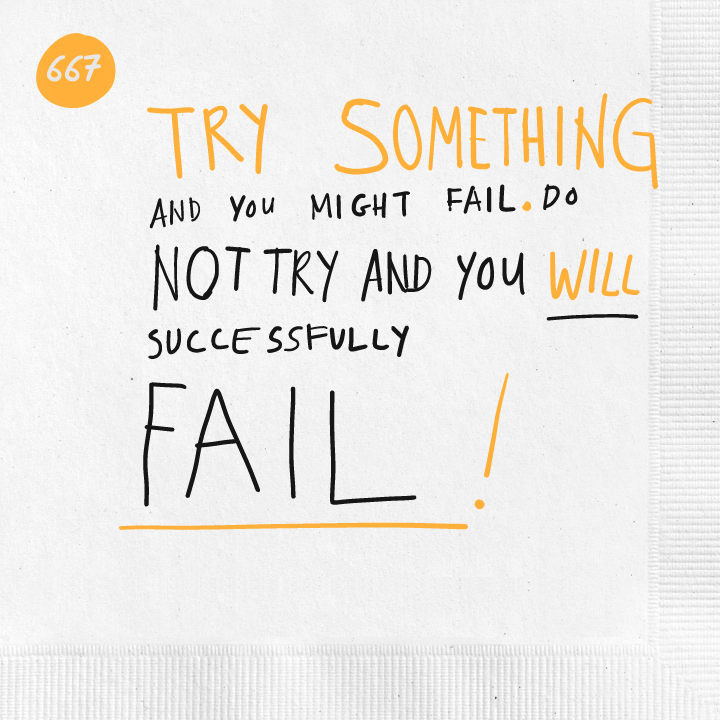 667
TRY SOMETHING
AND YOU MIGHT FAIL. DO
NOT TRY AND YOU WILL
SUCCESSFULLY
FAIL!